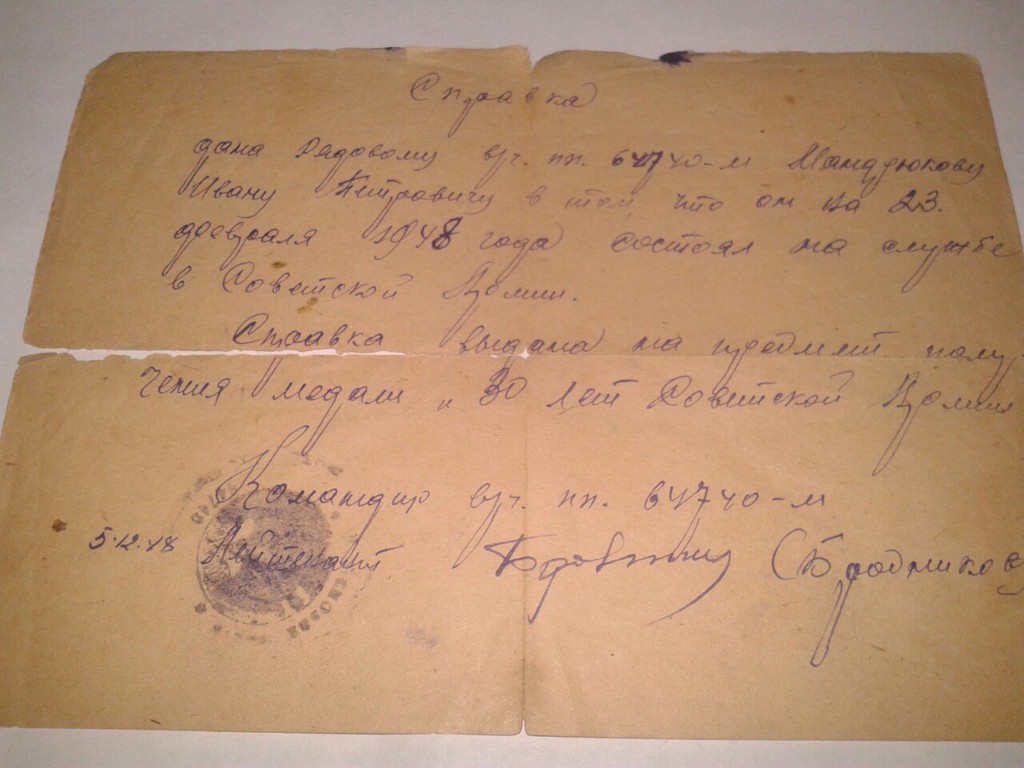 Справка
дана рядовому в/ч. пп. 64740-м Мандрюкову
Ивану Петровичу в том что он на 23.
февраля 1948 года состоял на службе
в Советской Армии.
Справка выдана на предмет полу-
чения медали „ 30 лет Советской Армии
Командир в/ч. пп. 64740-м
5.12.48 Лейтенант (Бродников)